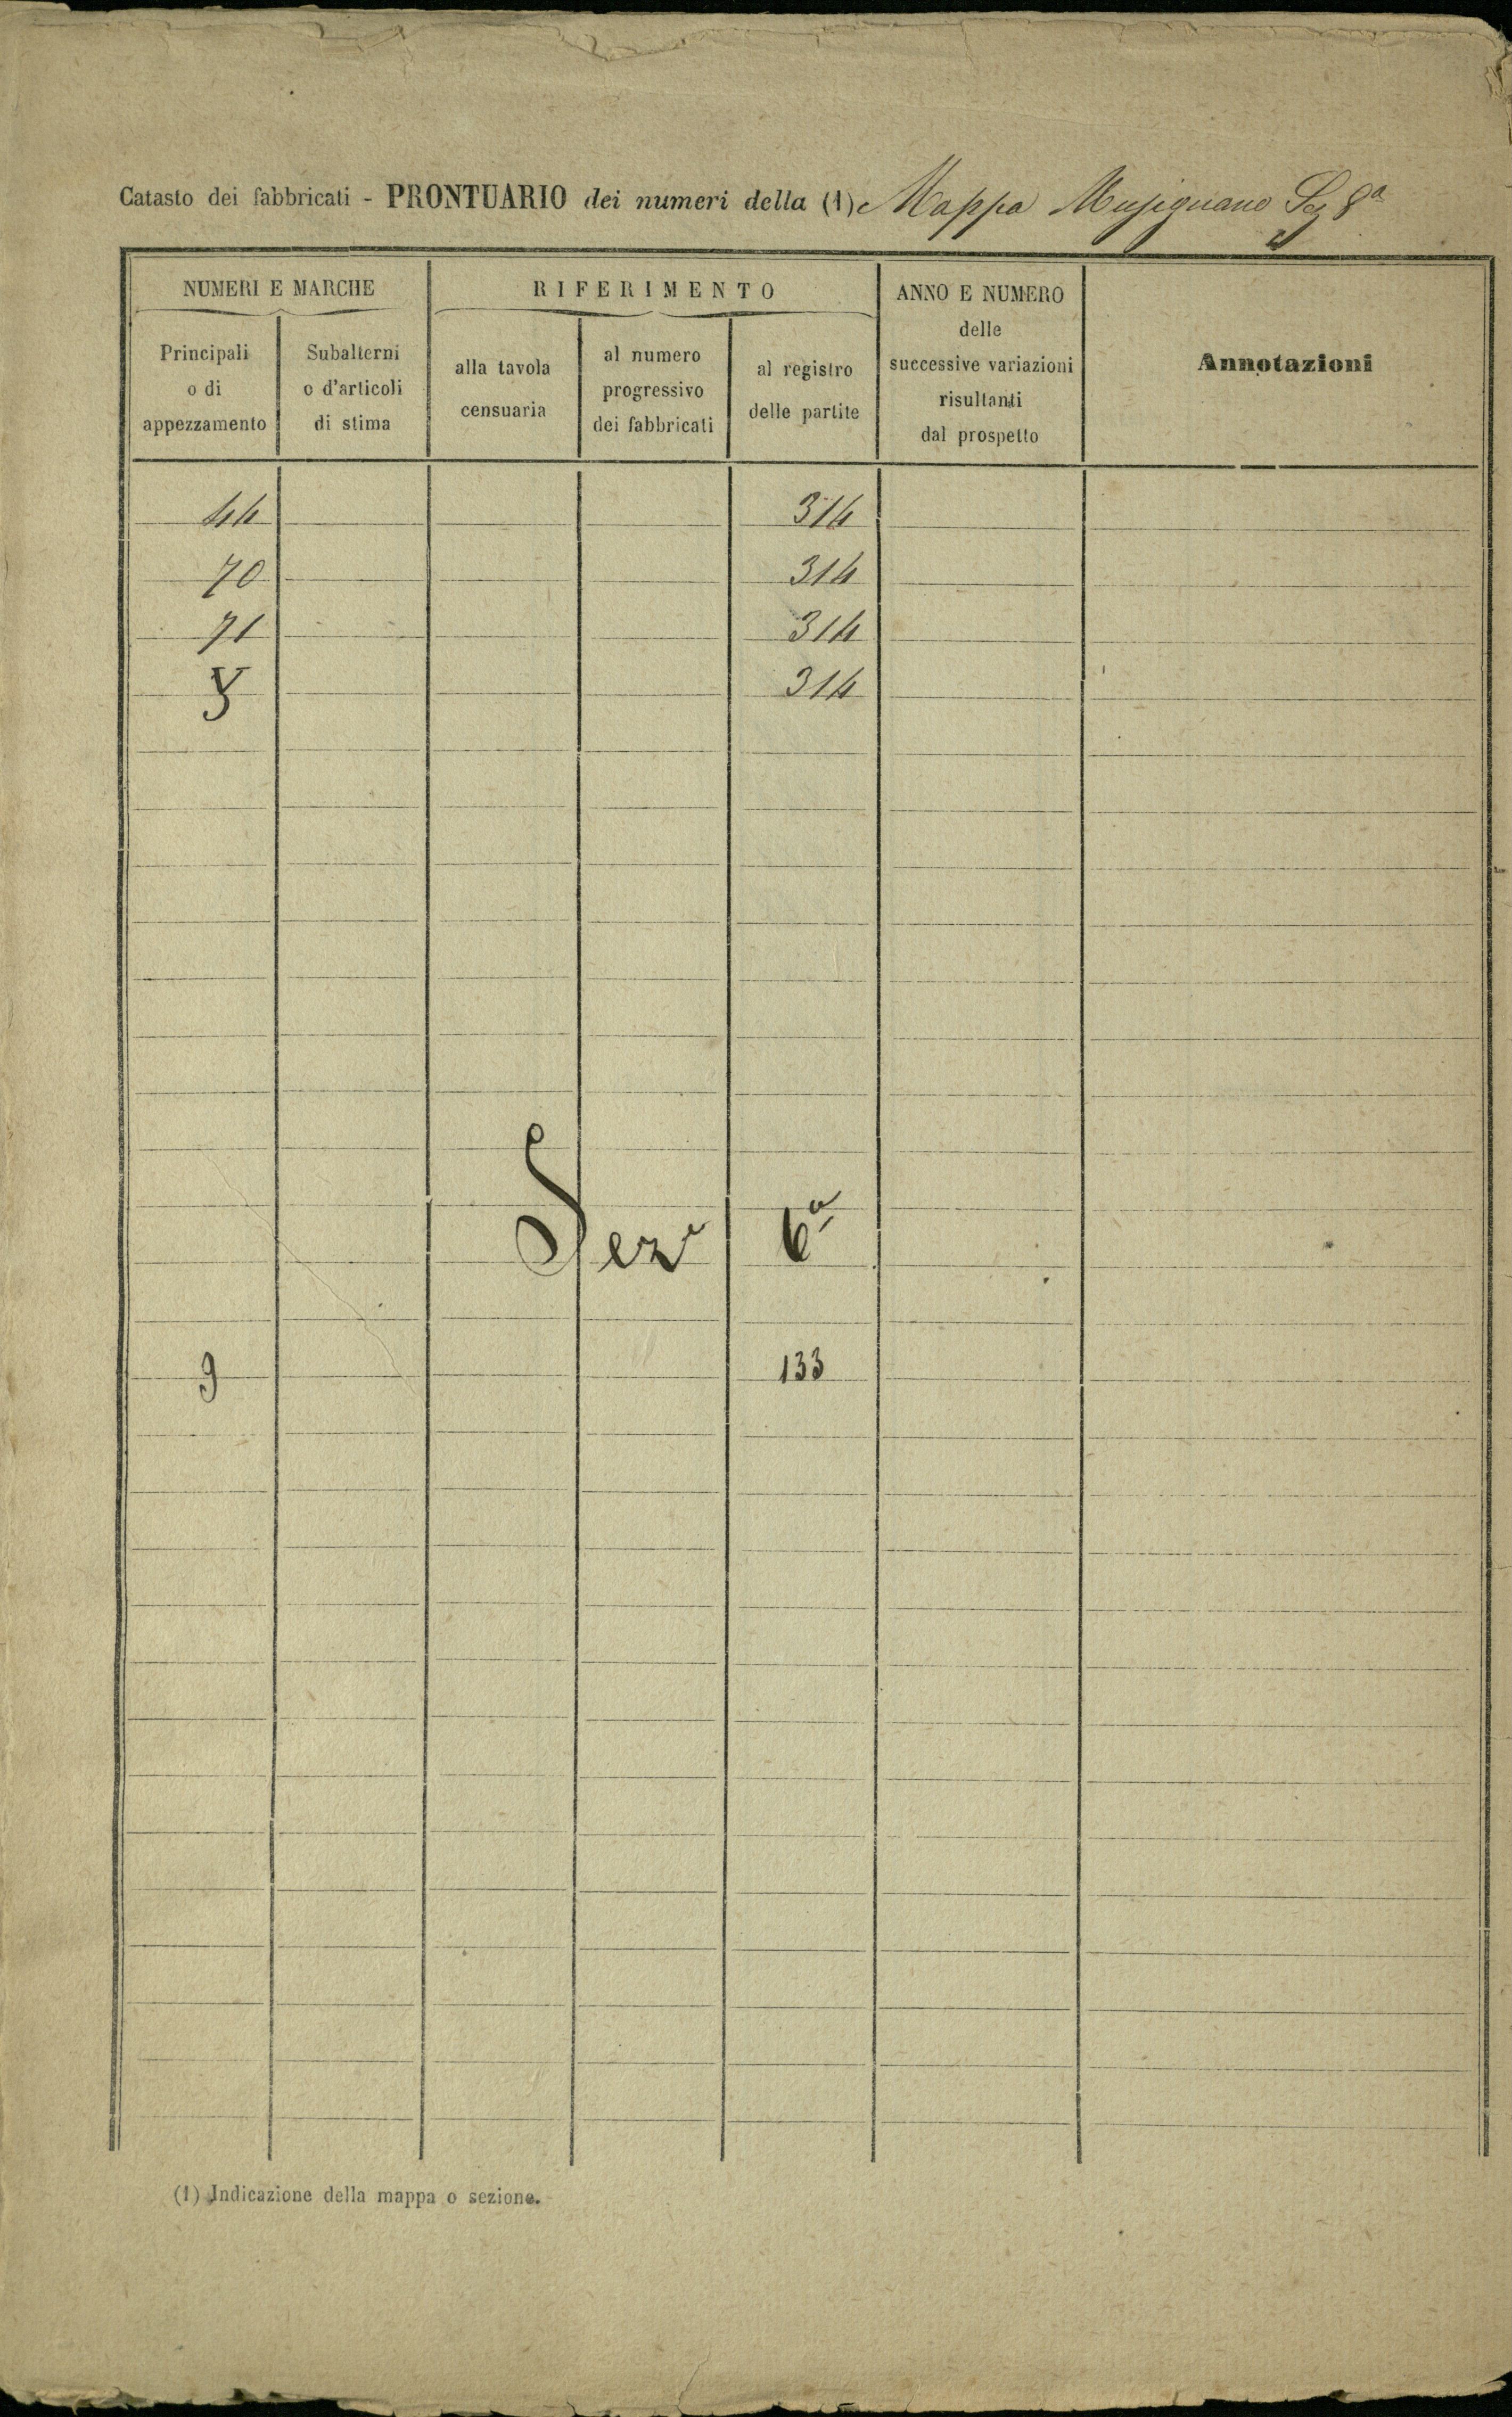 Catasto dei fabbricati - PRONTUARIO dei numeri della (1) Mappa Musignano Sez 8a
NUMERI E MARCHE
Principali
o di
appezzamento
Subalterni
o d'articoli
di stima
RIFERIMENTO
alla tavola
censuaria
al numero
progressivo
dei fabbricati
al registro
delle partite
ANNO E NUMERO
delle
successive variazioni
risultanti
dal prospetto
Annotazioni
44 314
70 314
71 314
314
Sez e 6a
9 133
(1) Indicazione della mappa o sezione.